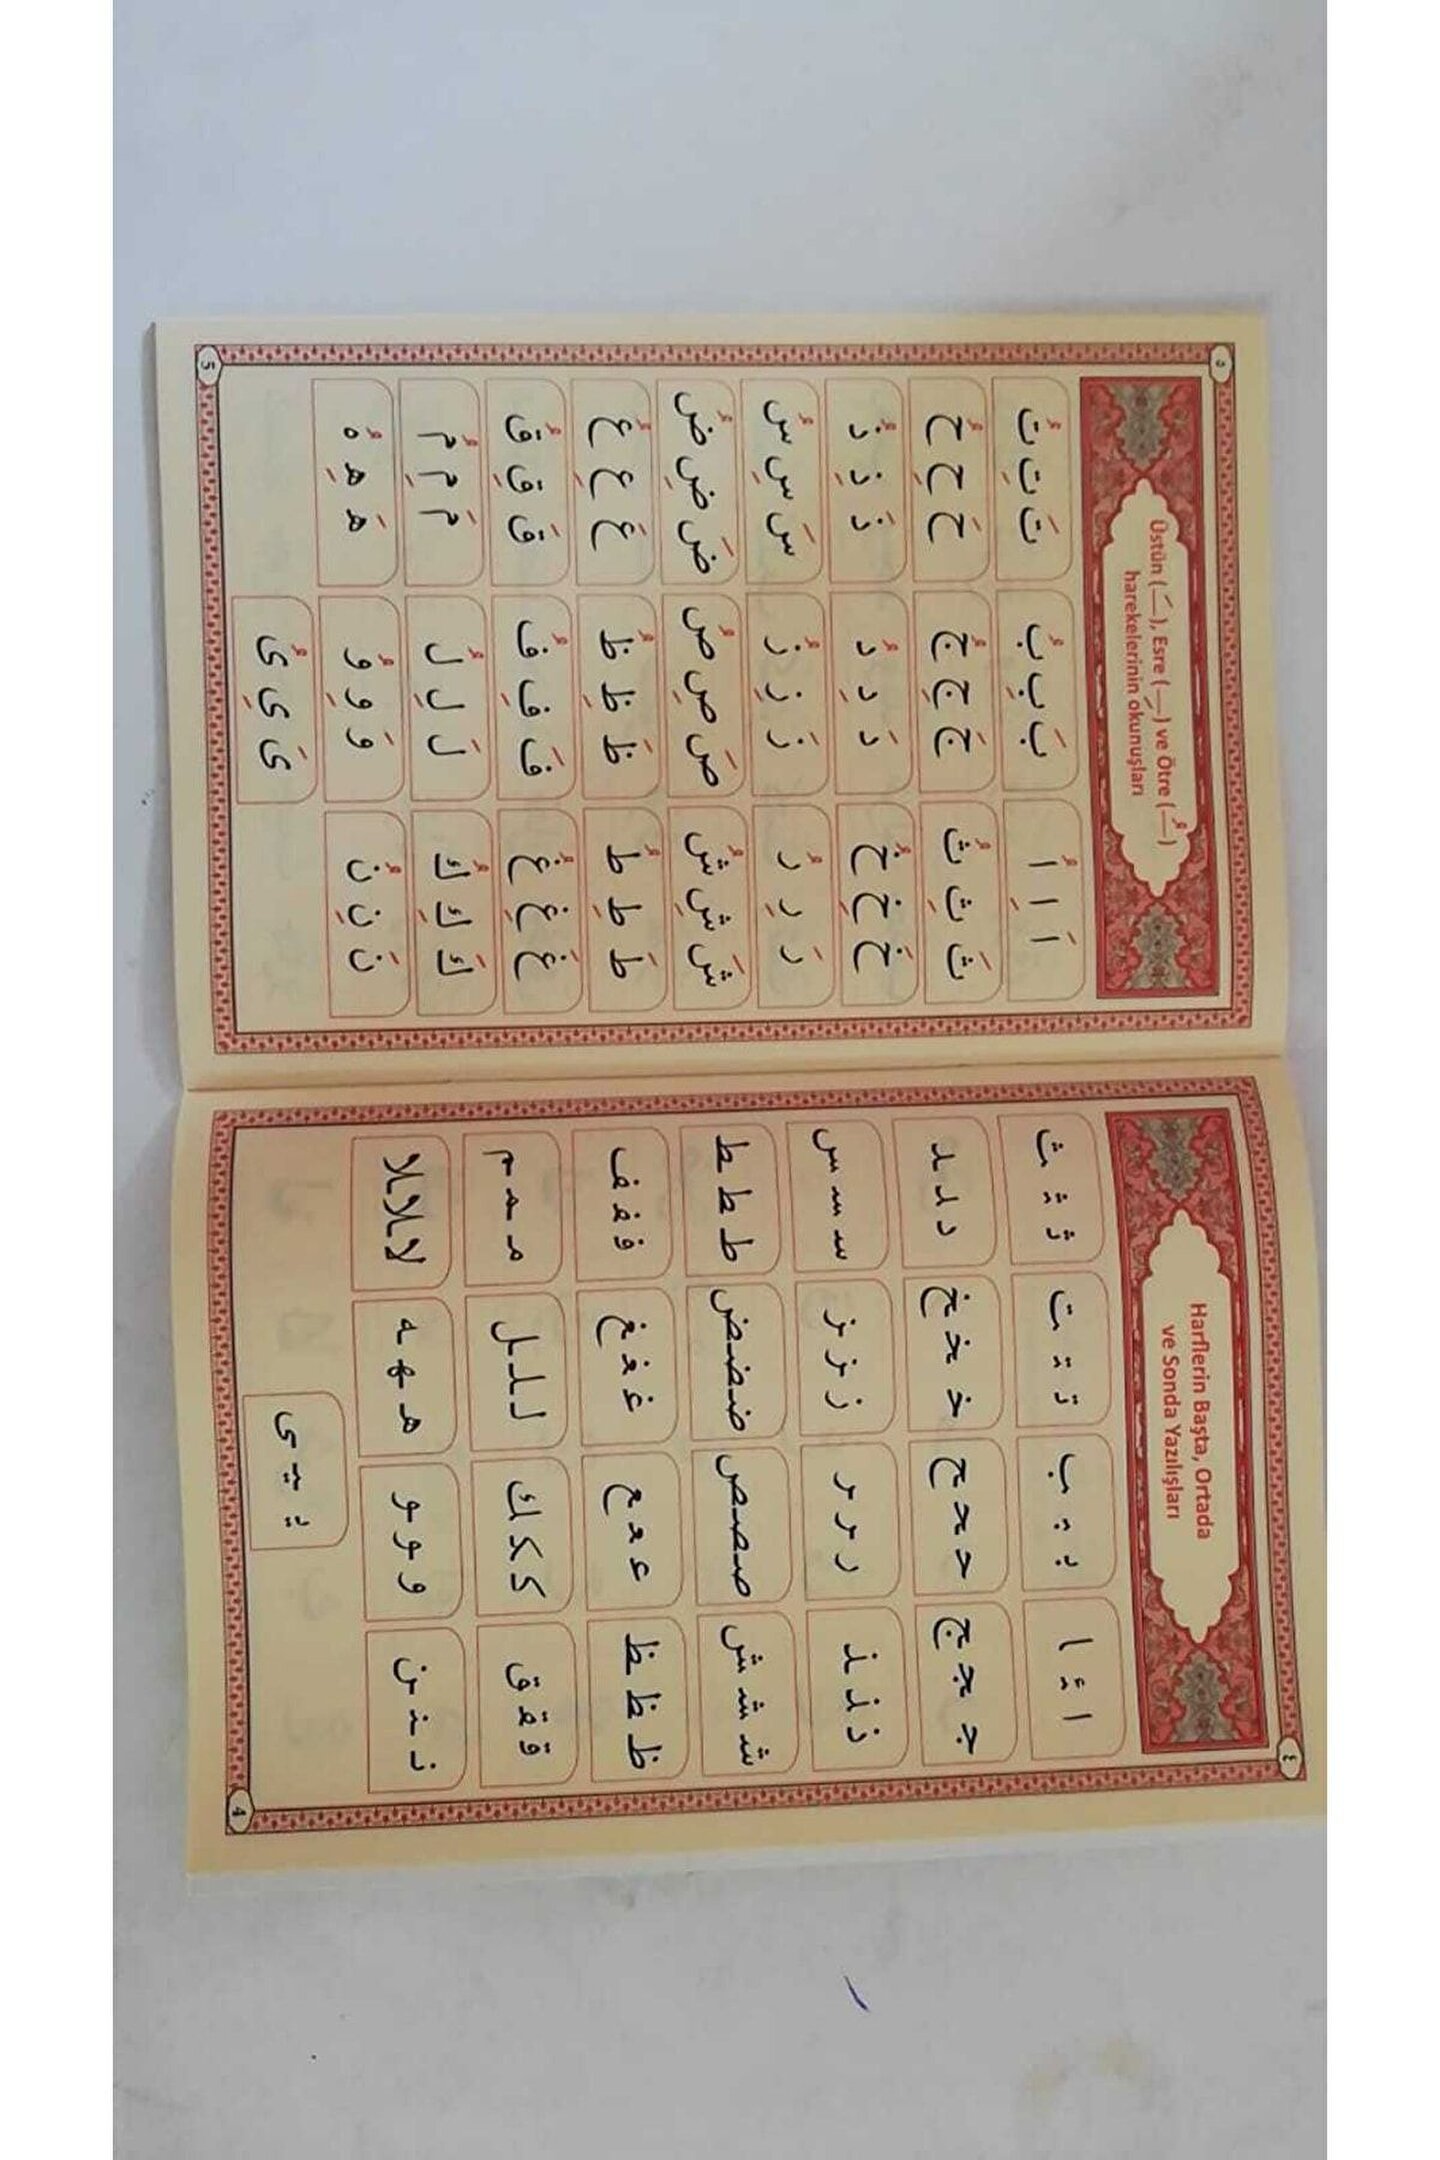 ٤
Harflerin Başta, Ortada
ve Sonda Yazılışları
ا ء ا بـ ـبـ ـب تـ ـتـ ـت ثـ ـثـ ـث
جـ ـجـ ـج حـ ـحـ ـح خـ ـخـ ـخ د ـد ـد
ذ ـذ ـذ ر ـر ـر ز ـز ـز سـ ـسـ ـس
شـ ـشـ ـش صـ ـصـ ـص ضـ ـضـ ـض ط ط ط
ظ ظ ظ عـ ـعـ ـع غـ ـغـ ـغ فـ ـفـ ـف
قـ ـقـ ـق كـ ـكـ ـك لـ ـلـ ـل مـ ـمـ ـم
نـ ـنـ ـن و ـو ـو هـ ـهـ ـه لا لا لا
يـ ـيـ ـى
4
٥
Üstün (ـَـ), Esre (ـِـ) ve Ötre (ـُـ)
harekelerinin okunuşları
اَ اِ اُ بَ بِ بُ تَ تِ تُ
ثَ ثِ ثُ جَ جِ جُ حَ حِ حُ
خَ خِ خُ دَ دِ دُ ذَ ذِ ذُ
رَ رِ رُ زَ زِ زُ سَ سِ سُ
شَ شِ شُ صَ صِ صُ ضَ ضِ ضُ
طَ طِ طُ ظَ ظِ ظُ عَ عِ عُ
غَ غِ غُ فَ فِ فُ قَ قِ قُ
كَ كِ كُ لَ لِ لُ مَ مِ مُ
نَ نِ نُ وَ وِ وُ هَ هِ هُ
ىَ ىِ ىُ
5